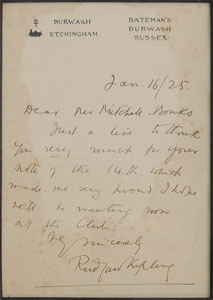 BURWASH
ETCHINGHAM
BATEMAN'S
BURWASH
SUSSEX.
Jan. 16/25.
Dear Mitchell-Banks
Just a line to thank
you very much for your
note of the 14th. which
made me very proud. I hope
meeting soon
at the Club.
sincerely
Rudyard Kipling